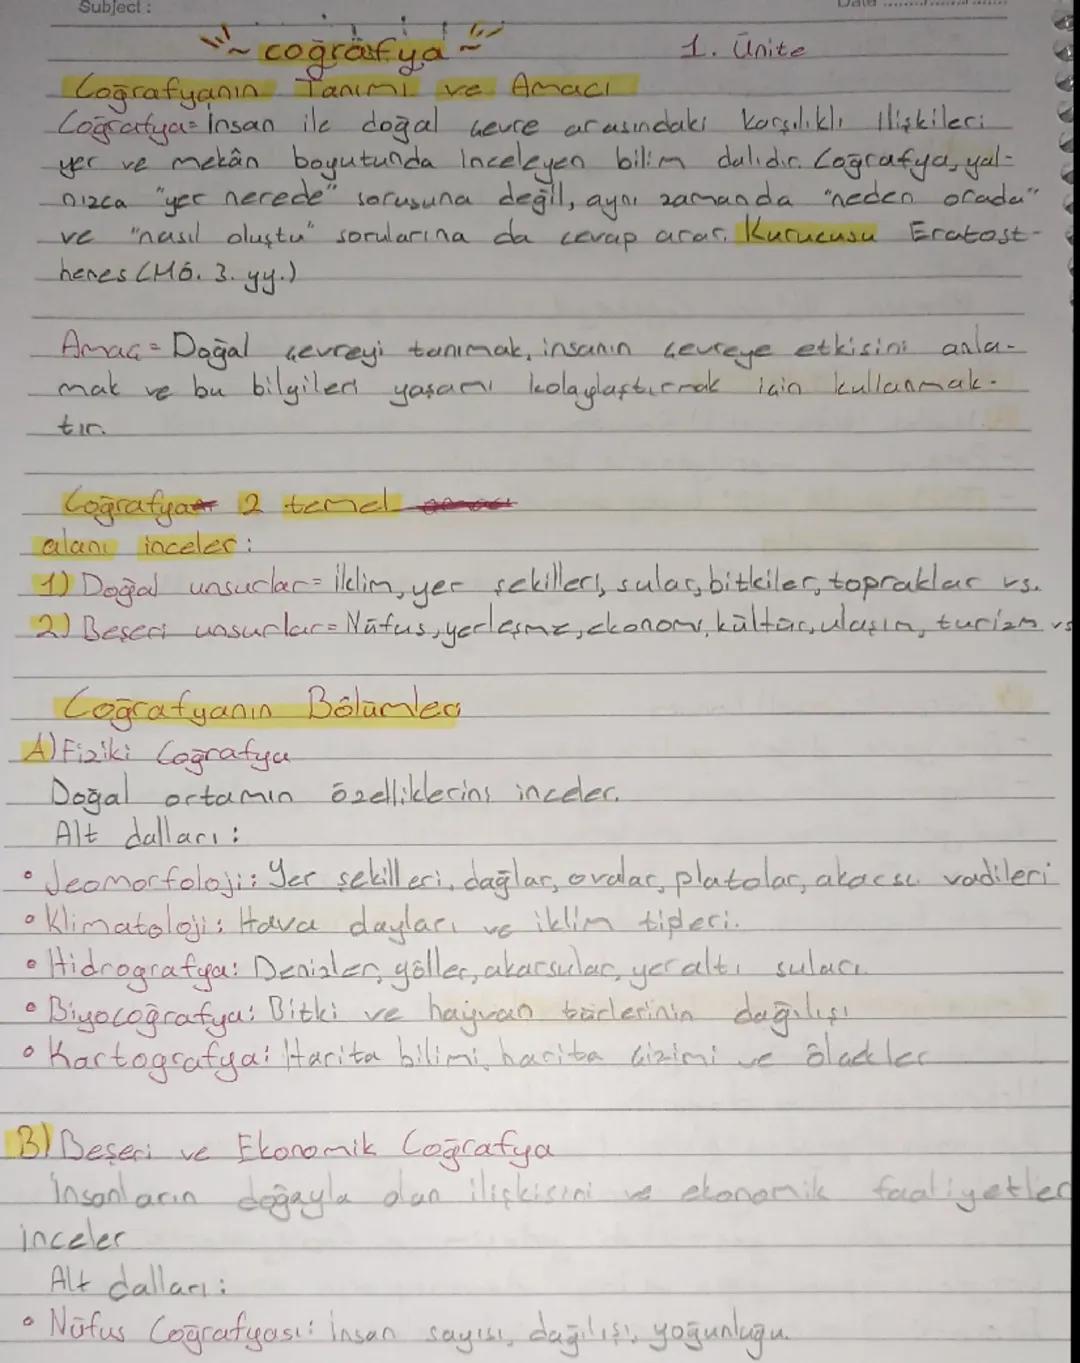 Subject :
coğrafya 1. Ünite
Coğrafyanın Tanımı ve Amacı
Coğrafya= İnsan ile doğal çevre arasındaki karşılıklı ilişkileri
yer ve mekân boyutunda inceleyen bilim dalıdır. Coğrafya, yal-
nızca "yer nerede" sorusuna değil, aynı zamanda "neden orada"
ve "nasıl oluştu" sorularına da cevap arar. Kurucusu Eratost-
henes (MÖ. 3. yy.)
Amaç= Doğal çevreyi tanımak, insanın çevreye etkisini anla-
mak ve bu bilgileri yaşamı kolaylaştırmak için kullanmak-
tır.
Coğrafya 2 temel
alanı inceler :
1) Doğal unsurlar= İklim, yer şekilleri, sular, bitkiler, topraklar vs.
2) Beşeri unsurlar= Nüfus, yerleşme, ekonomi, kültür, ulaşım, turizm vs
Coğrafyanın Bölümleri
A) Fiziki Coğrafya
Doğal ortamın özelliklerini inceler.
Alt dalları :
• Jeomorfoloji: Yer şekilleri, dağlar, ovalar, platolar, akarsu vadileri
• Klimatoloji: Hava olayları ve iklim tipleri.
• Hidrografya: Denizler, göller, akarsular, yer altı suları.
• Biyocoğrafya: Bitki ve hayvan türlerinin dağılışı
• Kartografya: Harita bilimi, harita çizimi ve ölçekler
B) Beşeri ve Ekonomik Coğrafya
İnsanların doğayla olan ilişkisini ve ekonomik faaliyetler
inceler
Alt dalları :
• Nüfus Coğrafyası: İnsan sayısı, dağılışı, yoğunluğu.